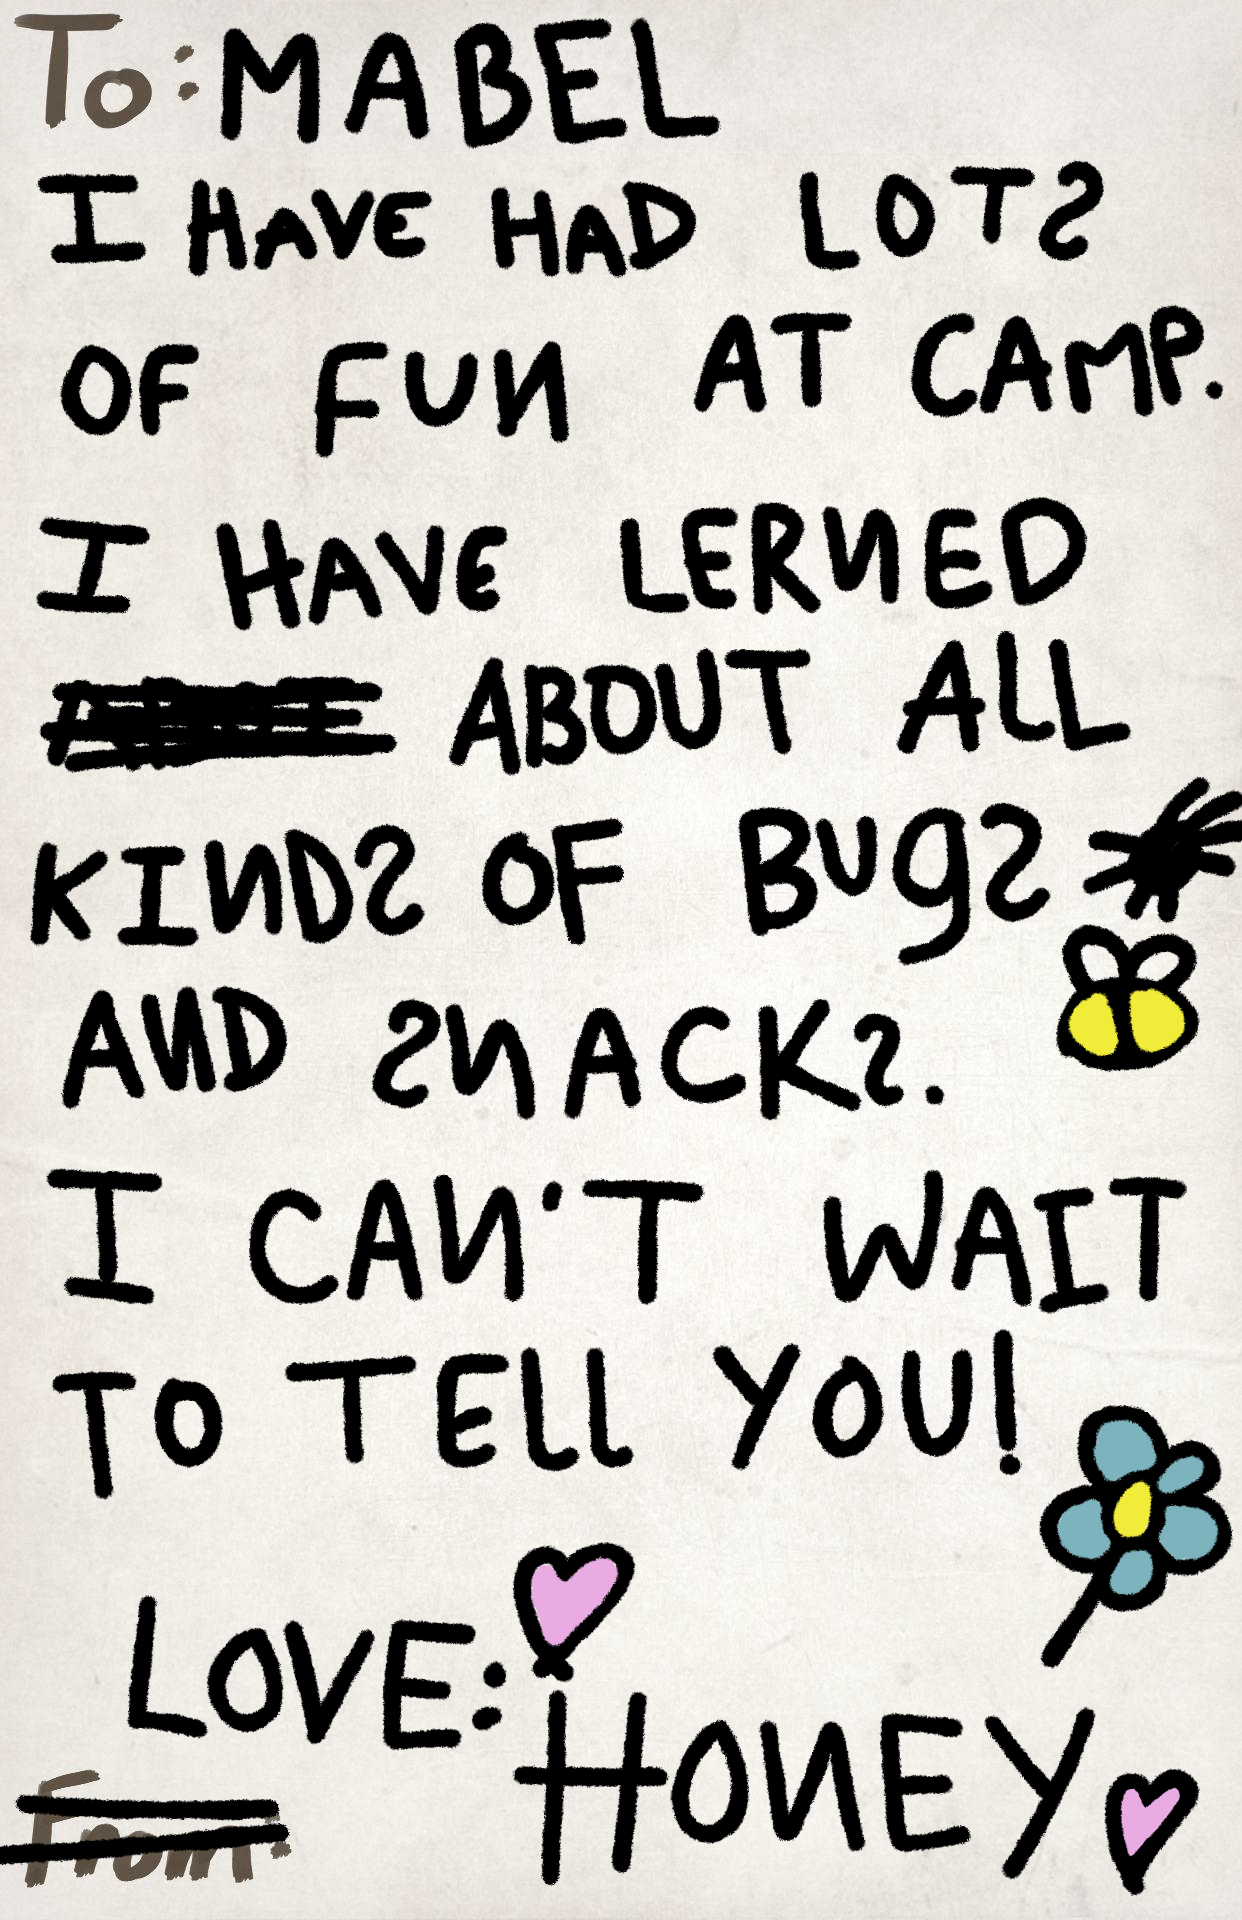 To: MABEL
I HAVE HAD LOTS
OF FUN AT CAMP.
I HAVE LERNED
ABOUT ALL
KINDS OF BUgS
AND SNACKS.
I CAN'T WAIT
TO TELL YOU!
LOVE:
HONEY
From: